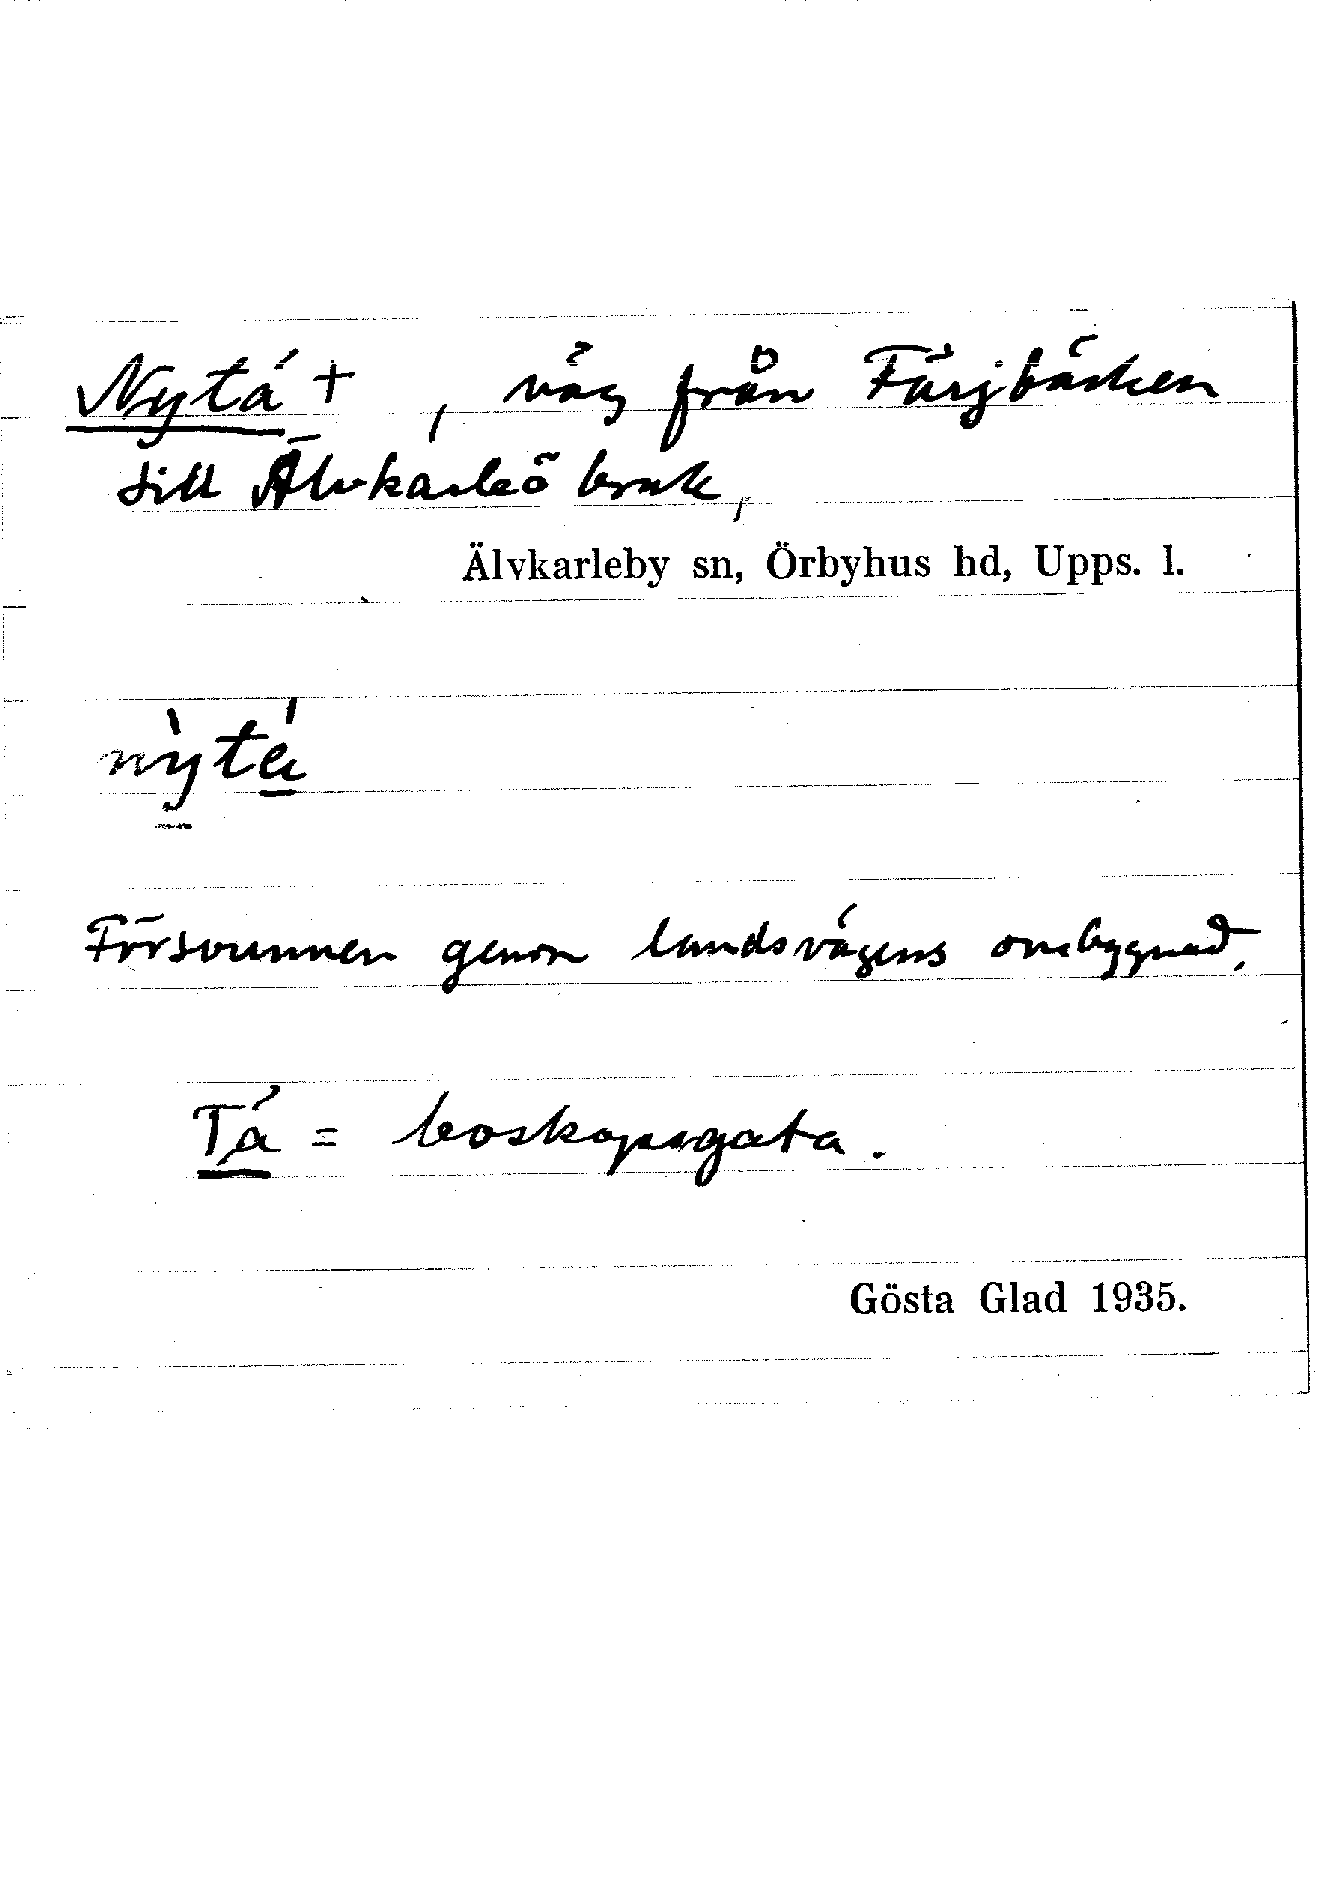 Nytä +, väg från Färjbäcken
till Älvkarleö bruk,
Älvkarleby sn, Örbyhus hd, Upps. l.
nỳtá
Försvunnen genom landsvägens ombyggnad.
Tä = boskapsgata.
Gösta Glad 1935.